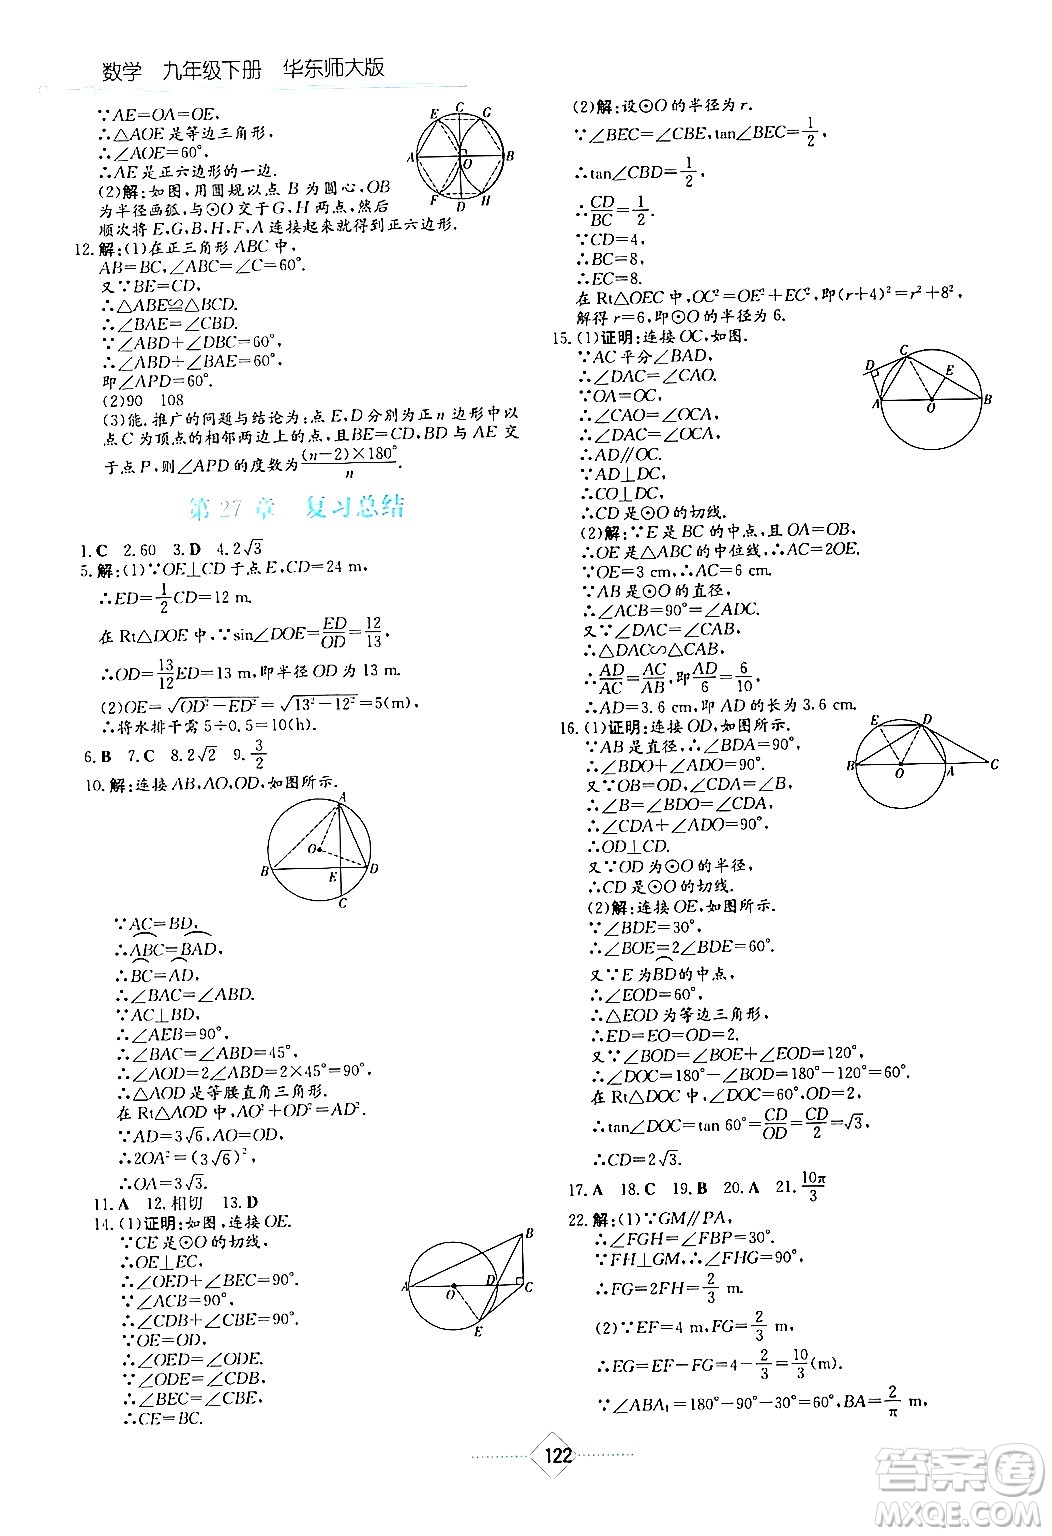 数学 九年级下册 华东师大版
∵AE=OA=OE,
∴△AOE是等边三角形,
∴∠AOE=60°,
∴AE是正六边形的一边.
(2)解:如图,用圆规以点B为圆心,OB
为半径画弧,与⊙O交于G,H两点,然后
顺次将E,G,B,H,F,A连接起来就得到正六边形.
E C G
A O B
F D H
12.解:(1)在正三角形ABC中,
AB=BC,∠ABC=∠C=60°.
又∵BE=CD,
∴△ABE≌△BCD.
∴∠BAE=∠CBD.
∵∠ABD+∠DBC=60°,
∴∠ABD+∠BAE=60°.
即∠APD=60°.
(2)90 108
(3)能.推广的问题与结论为:点E,D分别为正n边形中以
点C为顶点的相邻两边上的点,且BE=CD,BD与AE交
于点P,则∠APD的度数为(n-2)×180°/n.
第27章 复习总结
1.C 2.60 3.D 4.2√3
5.解:(1)∵OE⊥CD于点E,CD=24 m,
∴ED=1/2CD=12 m.
在Rt△DOE中,∵sin∠DOE=ED/OD=12/13,
∴OD=13/12ED=13 m,即半径OD为13 m.
(2)OE=√(OD²-ED²)=√(13²-12²)=5(m),
∴将水排干需5÷0.5=10(h).
6.B 7.C 8.2√2 9.3/2
10.解:连接AB,AO,OD,如图所示.
A
O
B E D
C
∵AC=BD,
∴ABC=BAD,
∴BC=AD,
∴∠BAC=∠ABD.
∵AC⊥BD,
∴∠AEB=90°,
∴∠BAC=∠ABD=45°,
∴∠AOD=2∠ABD=2×45°=90°,
∴△AOD是等腰直角三角形.
在Rt△AOD中,AO²+OD²=AD².
∵AD=3√6,AO=OD,
∴2OA²=(3√6)²,
∴OA=3√3.
11.A 12.相切 13.D
14.(1)证明:如图,连接OE.
∵CE是⊙O的切线,
∴OE⊥EC,
∴∠OED+∠BEC=90°.
∵∠ACB=90°,
∴∠CDB+∠CBE=90°.
∵OE=OD,
∴∠OED=∠ODE.
∵∠ODE=∠CDB,
∴∠BEC=∠CBE,
∴CE=BC.
B
A O D C
E
(2)解:设⊙O的半径为r.
∵∠BEC=∠CBE,tan∠BEC=1/2,
∴tan∠CBD=1/2,
∴CD/BC=1/2.
∵CD=4,
∴BC=8,
∴EC=8.
在Rt△OEC中,OC²=OE²+EC²,即(r+4)²=r²+8²,
解得r=6,即⊙O的半径为6.
15.(1)证明:连接OC,如图.
∵AC平分∠BAD,
∴∠DAC=∠CAO.
∵OA=OC,
∴∠CAO=∠OCA,
∴∠DAC=∠OCA,
∴AD∥OC.
∵AD⊥DC,
∴CO⊥DC,
∴CD是⊙O的切线.
C
D E
A O B
(2)解:∵E是BC的中点,且OA=OB,
∴OE是△ABC的中位线,∴AC=2OE.
∵OE=3 cm,∴AC=6 cm.
∵AB是⊙O的直径,
∴∠ACB=90°=∠ADC.
又∵∠DAC=∠CAB,
∴△DAC∽△CAB,
∴AD/AC=AC/AB,即AD/6=6/10,
∴AD=3.6 cm,即AD的长为3.6 cm.
16.(1)证明:连接OD,如图所示.
∵AB是直径,∴∠BDA=90°,
∴∠BDO+∠ADO=90°.
又∵OB=OD,∠CDA=∠B,
∴∠B=∠BDO=∠CDA,
∴∠CDA+∠ADO=90°,
∴OD⊥CD.
又∵OD为⊙O的半径,
∴CD是⊙O的切线.
E D
B O A C
(2)解:连接OE,如图所示.
∵∠BDE=30°,
∴∠BOE=2∠BDE=60°.
又∵E为BD的中点,
∴∠EOD=60°,
∴△EOD为等边三角形,
∴ED=EO=OD=2.
又∵∠BOD=∠BOE+∠EOD=120°,
∴∠DOC=180°-∠BOD=180°-120°=60°.
在Rt△DOC中,∠DOC=60°,OD=2,
∴tan∠DOC=tan 60°=CD/OD=CD/2=√3,
∴CD=2√3.
17.A 18.C 19.B 20.A 21.10π/3
22.解:(1)∵GM∥PA,
∴∠FGH=∠FBP=30°.
∵FH⊥GM,∴∠FHG=90°,
∴FG=2FH=2/3 m.
(2)∵EF=4 m,FG=2/3 m,
∴EG=EF-FG=4-2/3=10/3(m).
∵∠ABA₁=180°-90°-30°=60°,BA=2/π m,
122
答案圈
MXQE.COM